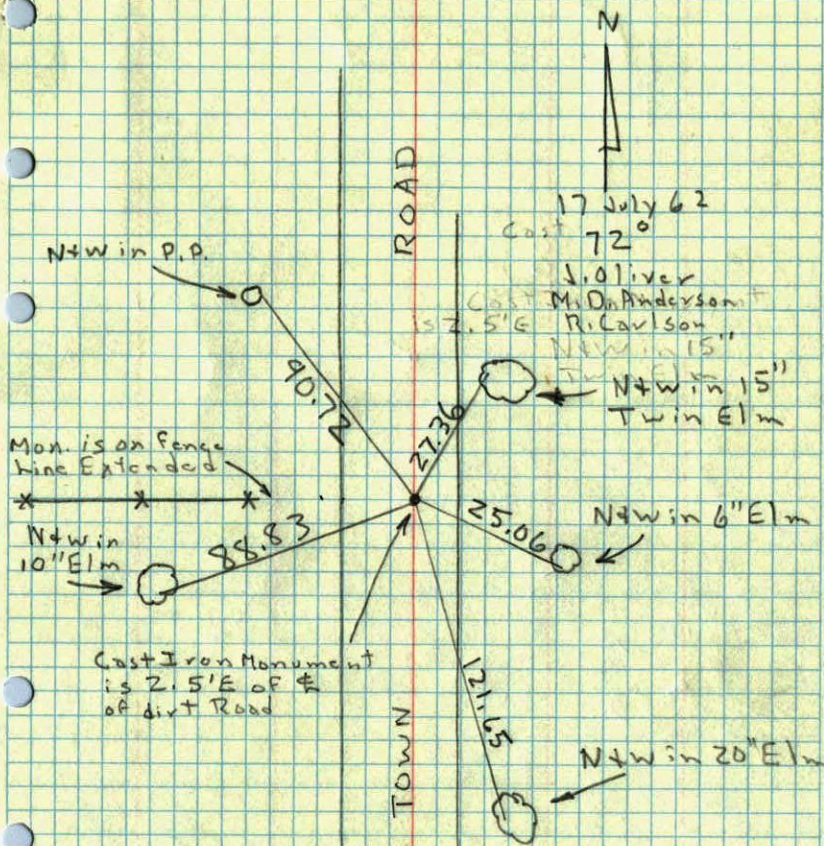 N
ROAD
17 July 62
72°
J. Oliver
M. D. Anderson
R. Carlson
N&W in P.P.
90.72
27.36
N&W in 15"
Twin Elm
Mon. is on fence
Line Extended
88.83
25.06
N&W in 6" Elm
N&W in
10" Elm
Cast Iron Monument
is 2.5'E of ℄
of dirt Road
121.65
TOWN
N&W in 20" Elm
Cast
is 2.5'E
N&W in 15"
Twin Elm